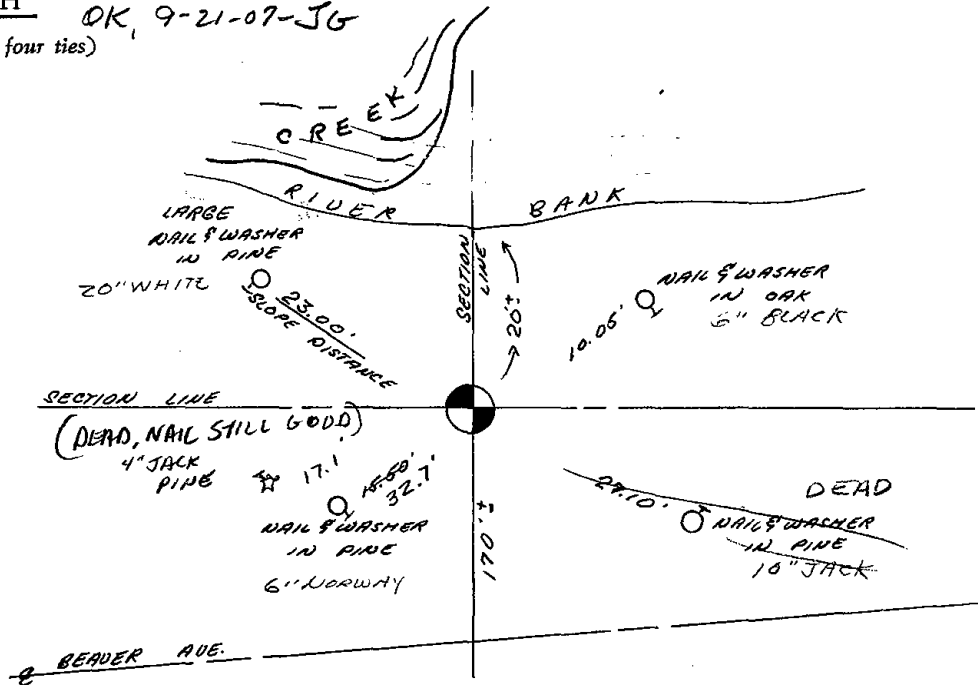 H
OK, 9-21-07-JG
four ties)
CREEK
RIVER BANK
LARGE
NAIL & WASHER
IN PINE
20" WHITE
23.00'
SLOPE DISTANCE
SECTION
LINE
20'±
NAIL & WASHER
IN OAK
6" BLACK
SECTION LINE
(DEAD, NAIL STILL GOOD)
4" JACK
PINE
17.1
32.7'
NAIL & WASHER
IN PINE
6" NORWAY
170'±
DEAD
NAIL & WASHER
IN PINE
10" JACK
BEAVER AVE.